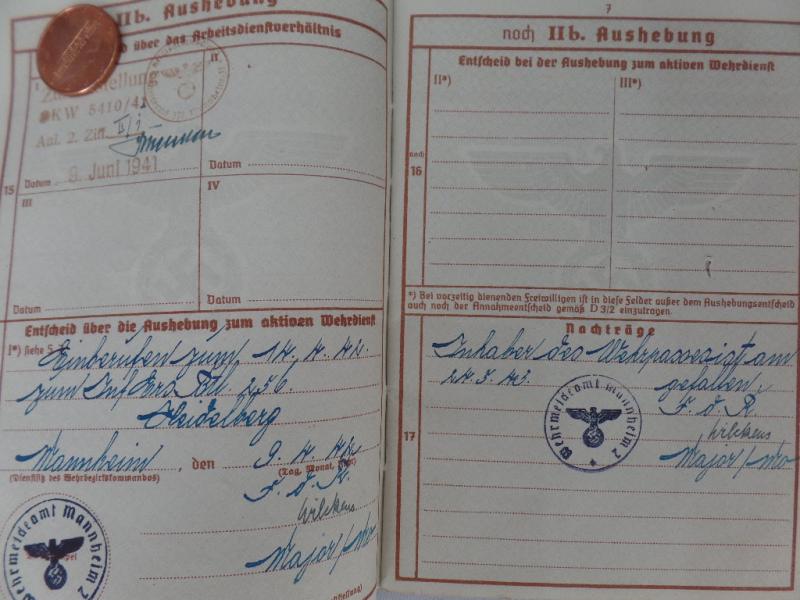 IIb. Aushebung
über das Arbeitsdienstverhältnis
I
II
OKW 5410/41
Anl. 2. Ziff. II/j
Datum 9. Juni 1941
Datum
15
III
IV
Datum
Datum
Entscheid über die Aushebung zum aktiven Wehrdienst
I*) siehe S.
Einberufen zum 14. 4. 42.
zum Inf. Ers. Btl. 256.
Heidelberg
Mannheim, den 9. 4. 42
(Dienstsitz des Wehrbezirkskommandos)
(Tag, Monat, Jahr)
F. d. R.
Wilckens
Major
Wehrmeldeamt Mannheim 2
7
noch IIb. Aushebung
Entscheid bei der Aushebung zum aktiven Wehrdienst
II*)
III*)
noch
16
*) Bei vorzeitig dienenden Freiwilligen ist in diese Felder außer dem Aushebungsentscheid
auch noch der Annahmeentscheid gemäß D 3/2 einzutragen.
Nachträge
Inhaber des Wehrpasses ist am
24. 5. 42. gefallen.
F. d. R
Wilckens
Major
17
Wehrmeldeamt Mannheim 2